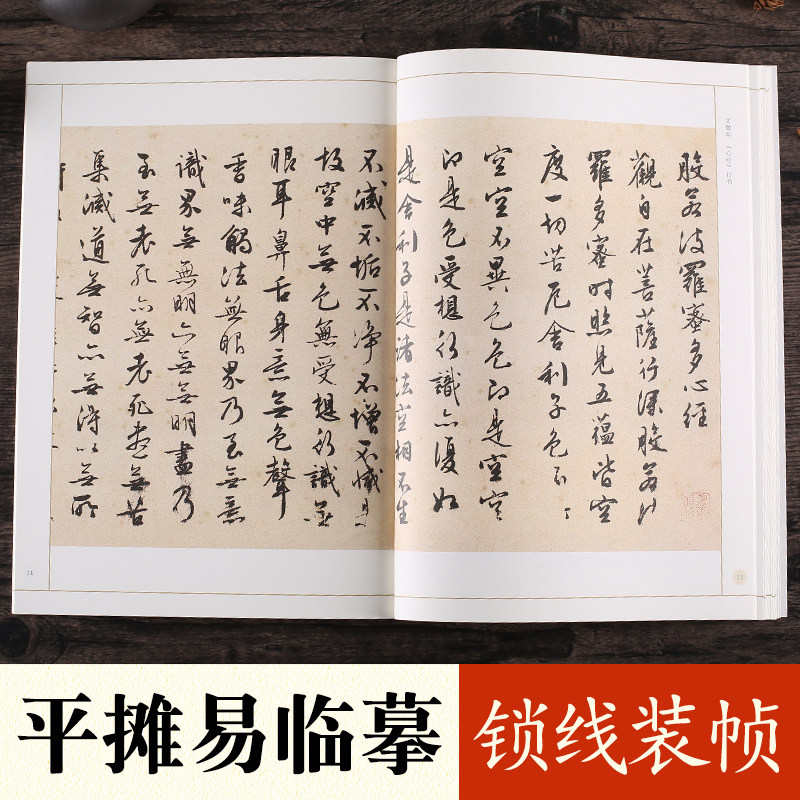 文徵明 《心经》 行书
般若波羅蜜多心經
觀自在菩薩行深般若波
羅多蜜時照見五蘊皆空
度一切苦厄舍利子色不
空空不異色色即是空空
即是色受想行識亦復如
是舍利子是諸法空相不生
不滅不垢不净不增不減是
故空中無色無受想行識無
眼耳鼻舌身意無色聲
香味觸法無眼界乃至無意
識界無無明亦無無明盡乃
至無老死亦無老死盡無苦
集滅道無智亦無得以無所
14
13
平摊易临摹
锁线装帧